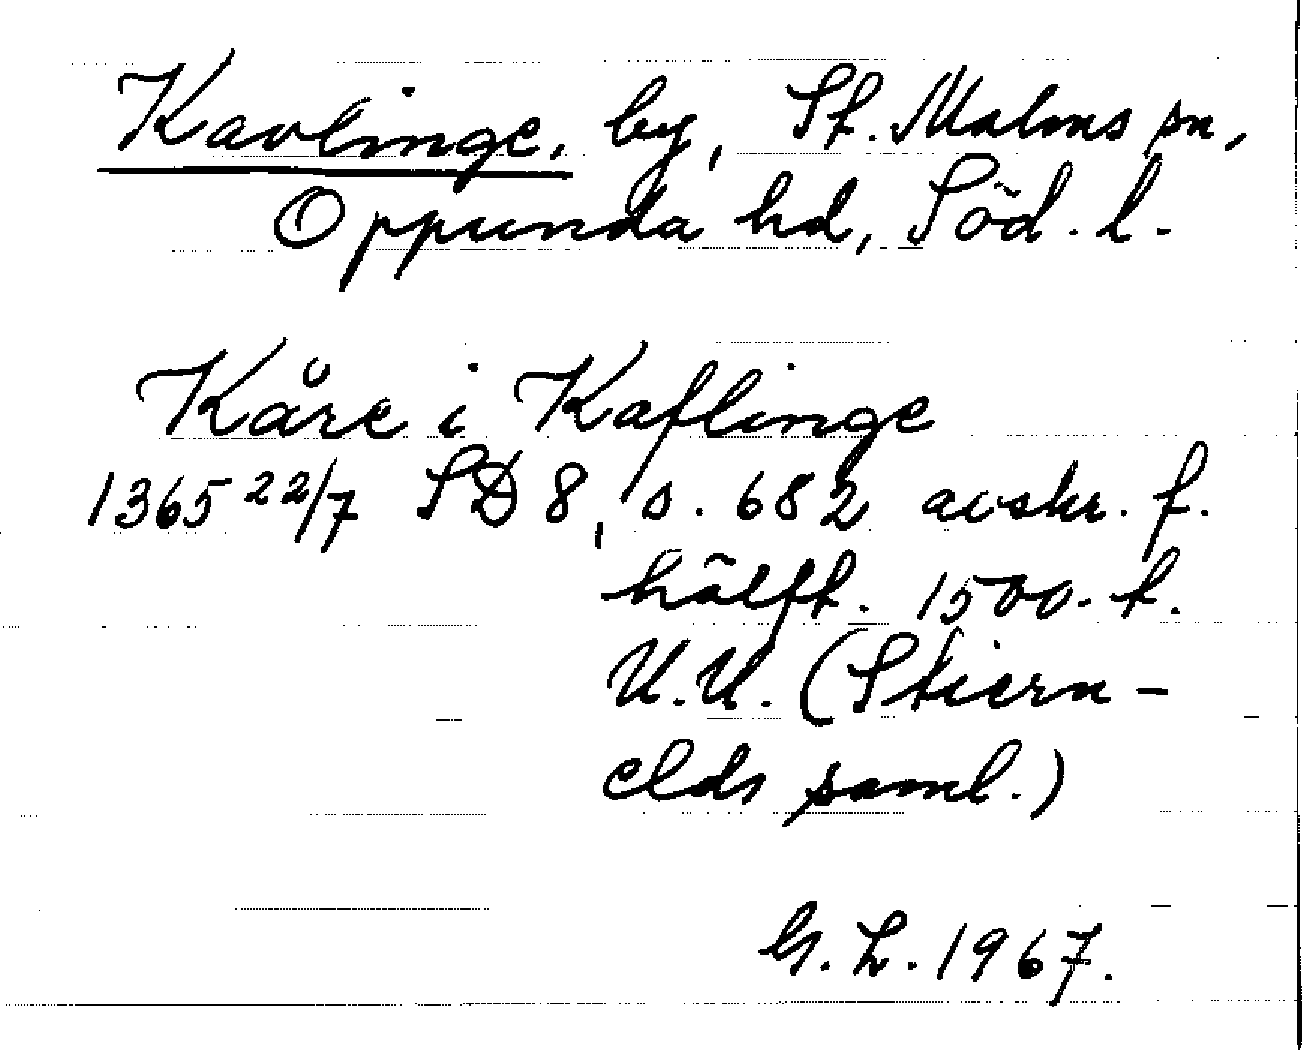 Kavlinge, by, St. Malms sn,
Oppunda hd, Söd. l.
Kåre i Kaflinge
1365 22/7 SD 8, s. 682 avskr. f.
hälft. 1500-t.
U.U. (Stiern-
elds saml.)
G. L. 1967.